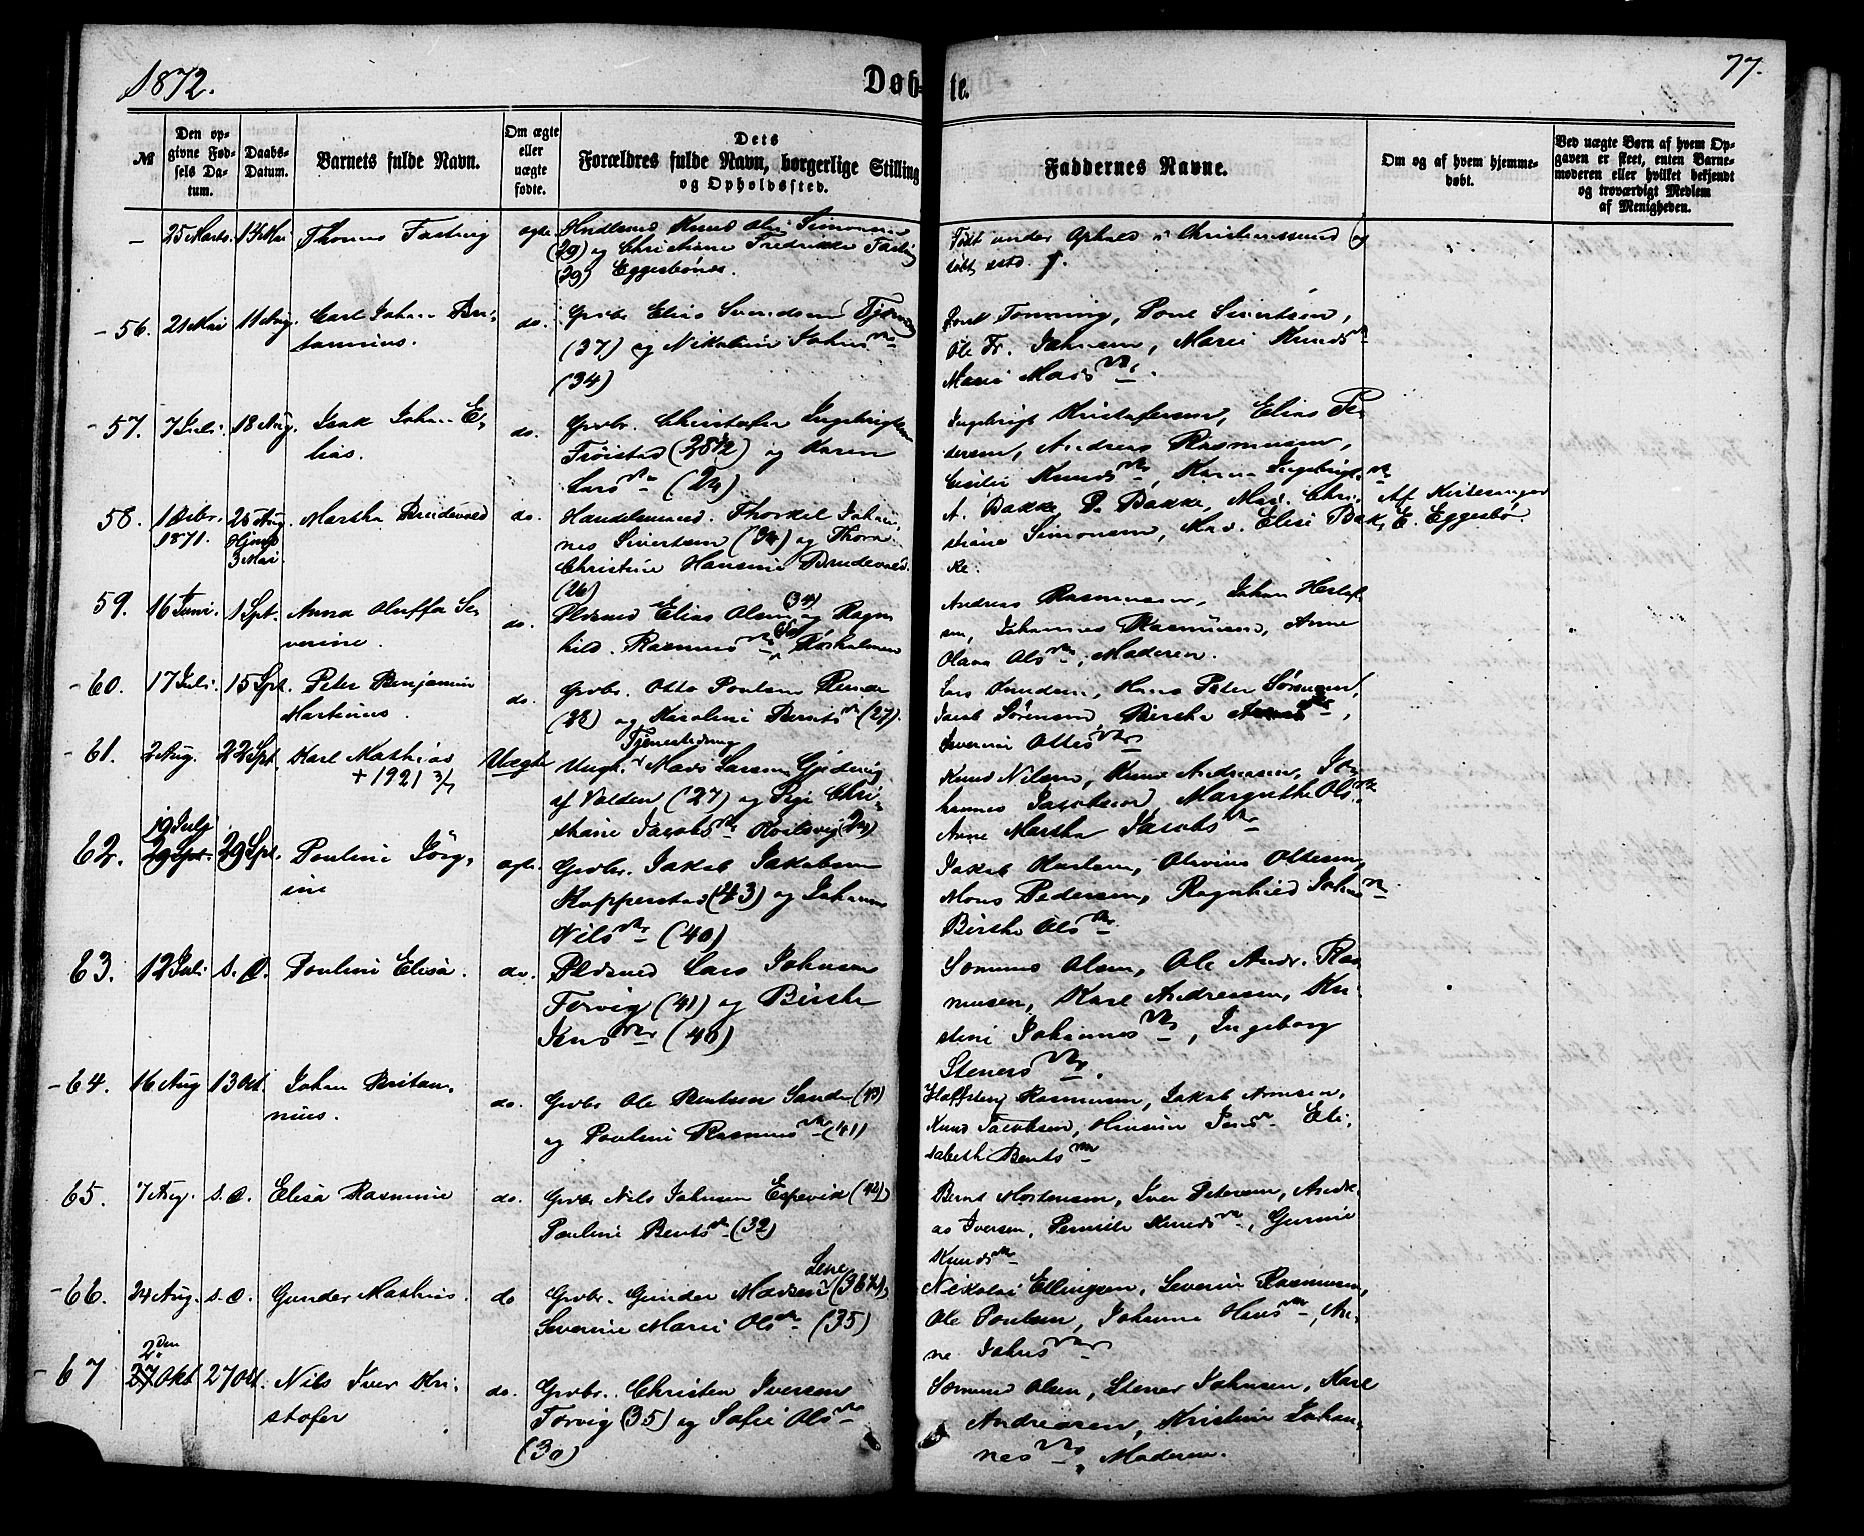 1872.
Døb-
te.
77.
№
Den op-
givne Fød-
sels Da-
tum.
Daabs-
Datum.
Barnets fulde Navn.
Om ægte
eller
uægte
fødte.
Dets
Forældres fulde Navn, borgerlige Stilling
og Opholdssted.
Faddernes Navne.
Om og af hvem hjemme-
døbt.
Ved uægte Børn af hvem Op-
gaven er skeet, enten Barne-
moderen eller hvilket bekjendt
og troværdigt Medlem
af Menigheden.
– 25 Marts. Thomas Fasting ægte Knud Simonsen
(29) og Christiane Fredrikke Fasting
(29) Eggesbønes.
Født under Ophold i Christianssund og
døbt sstd.
– 56. 21 Mai 11 Aug. Carl Johan Bri-
tannius. do. Grbr. Elias Svendsen
(37) og Nikoline Johns
(34)
Tomming, Poul Sivertsen,
Ole Fr. Johnsen, Marie Knuds
Marie Mads
– 57. 7 Juli 18 Aug. Isak Johan E-
lias. do. Grbr. Christofer Ingebrigtsen
Frøistad (28 1/2) og Karen
Lars (24)
Ingebrigt Kristofersen, Elias Pe-
dersen, Andreas Rasmussen,
Knuds, Karen Ingebrigts
58. 1 Debr.
1871. 25 Aug.
Hjmd
3 Mai Martha Brudevold do. Handelsmand. Thorkel Johan-
nes Sivertsen (34) og Thora
Christine Hansine Brudevold.
(26)
A. Bakke, P. Bakke, Mad. Chri-
stiane Simonsen, Mad. Elise Bak-
ke.
Af Kirkesanger
E. Eggesbø.
59. 16 Juni. 1 Spt. Anna Oluffa Se-
verine. do. Pldsmd Elias Olsen (34) og Ragn-
hild Rasmus Torholmen
Andreas Rasmussen, Johan
sen, Johannes Rasmussen, Anne
Olava Ols, Moderen.
– 60. 17 Juli. 15 Spt. Peter Benjamin
Martinus. do. Grbr. Otto Poulsen Runde
(28) og Karoline Bernts (27).
Lars Knudsen, Hans Peter Sørensen,
Jacob Sørensen, Birthe
Severine Ottes
– 61. 2 Aug. 22 Spt. Karl Mathias
+ 1921 3/7 Uægte Tjenestedreng
Ungk. Mads Larsen
af Volden (27) og Chri-
stiane Jacobs Koilsvig (24)
Knud Nilsen, Knud Andreasen, Jo-
hannes Jacobsen, Margrethe Ols
Anne Martha Jacobs
62. 19 July
29 Spt. 29 Spt. Pouline Jørg-
ine ægte. Grbr. Jakob Jakobsen
Kopperstad (43) og Johanne
Nils (40)
Jakob Karlsen, Olavius Ottesen,
Mons Pedersen, Ragnhild Johns
Birthe Ols
63. 12 Juli s. D. Pouline Elisa. do. Pldsmd Lars Johnsen
Torvig (41) og Birthe
Jens (40)
Somund Olsen, Ole Andr. Ras-
mussen, Karl Andreasen, Kri-
stine Johannes, Ingeborg
Steners.
– 64. 16 Aug 13 Okt. Johan Britan-
nius. do. Grbr Ole Bentsen Sande (43)
og Pouline Rasmus (41)
Rasmussen, Jakob Arnesen,
Knud Jacobsen, Jens Eli-
sabeth Bents
65. 7 Aug. s. D. Elisa Rasmine do. Grbr Nils Johnsen Espevik (42)
Pouline Bents (32)
Bernt Mortensen, Iver Petersen, Andr-
as Iversen, Pernille Knuds, Gurine
Knuds
– 66. 24 Aug. s. D. Gunder Mathias. do Grbr. Gunder Madsen (36 1/2),
Lene
Severine Marie Ols (35)
Nikolai Ellingsen, Severin Rasmussen,
Ole Poulsen, Johanne Hans, An-
ne Johns
– 67 2den
27 Okt 27 Okt. Nils Iver Kri-
stofer do. Grbr. Christen Iversen
Torvig (35) og Sofie Ols
(30)
Somund Olsen, Stener Johnsen, Karl
Andreasen, Kristine Johan-
nes, Moderen.